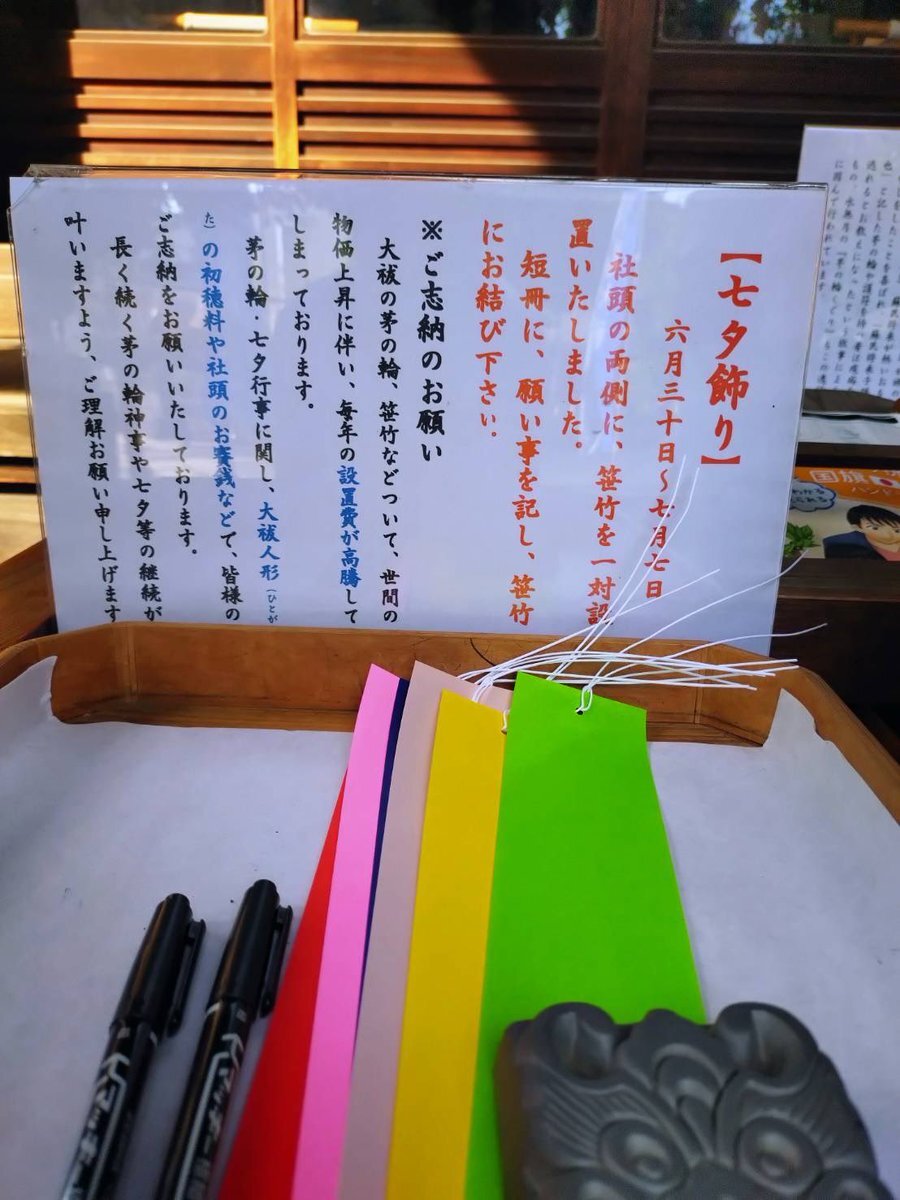 【七夕飾り】
六月三十日〜七月七日
社頭の両側に、笹竹を一対設
置いたしました。
短冊に、願い事を記し、笹竹
にお結び下さい。
※ご志納のお願い
大祓の茅の輪、笹竹などついて、世間の
物価上昇に伴い、毎年の設置費が高騰して
しまっております。
茅の輪・七夕行事に関し、大祓人形（ひとが
た）の初穂料や社頭のお賽銭などで、皆様の
ご志納をお願いいたしております。
長く続く茅の輪神事や七夕等の継続が
叶いますよう、ご理解お願い申し上げます
国旗
わかる
マッキー
マッキー